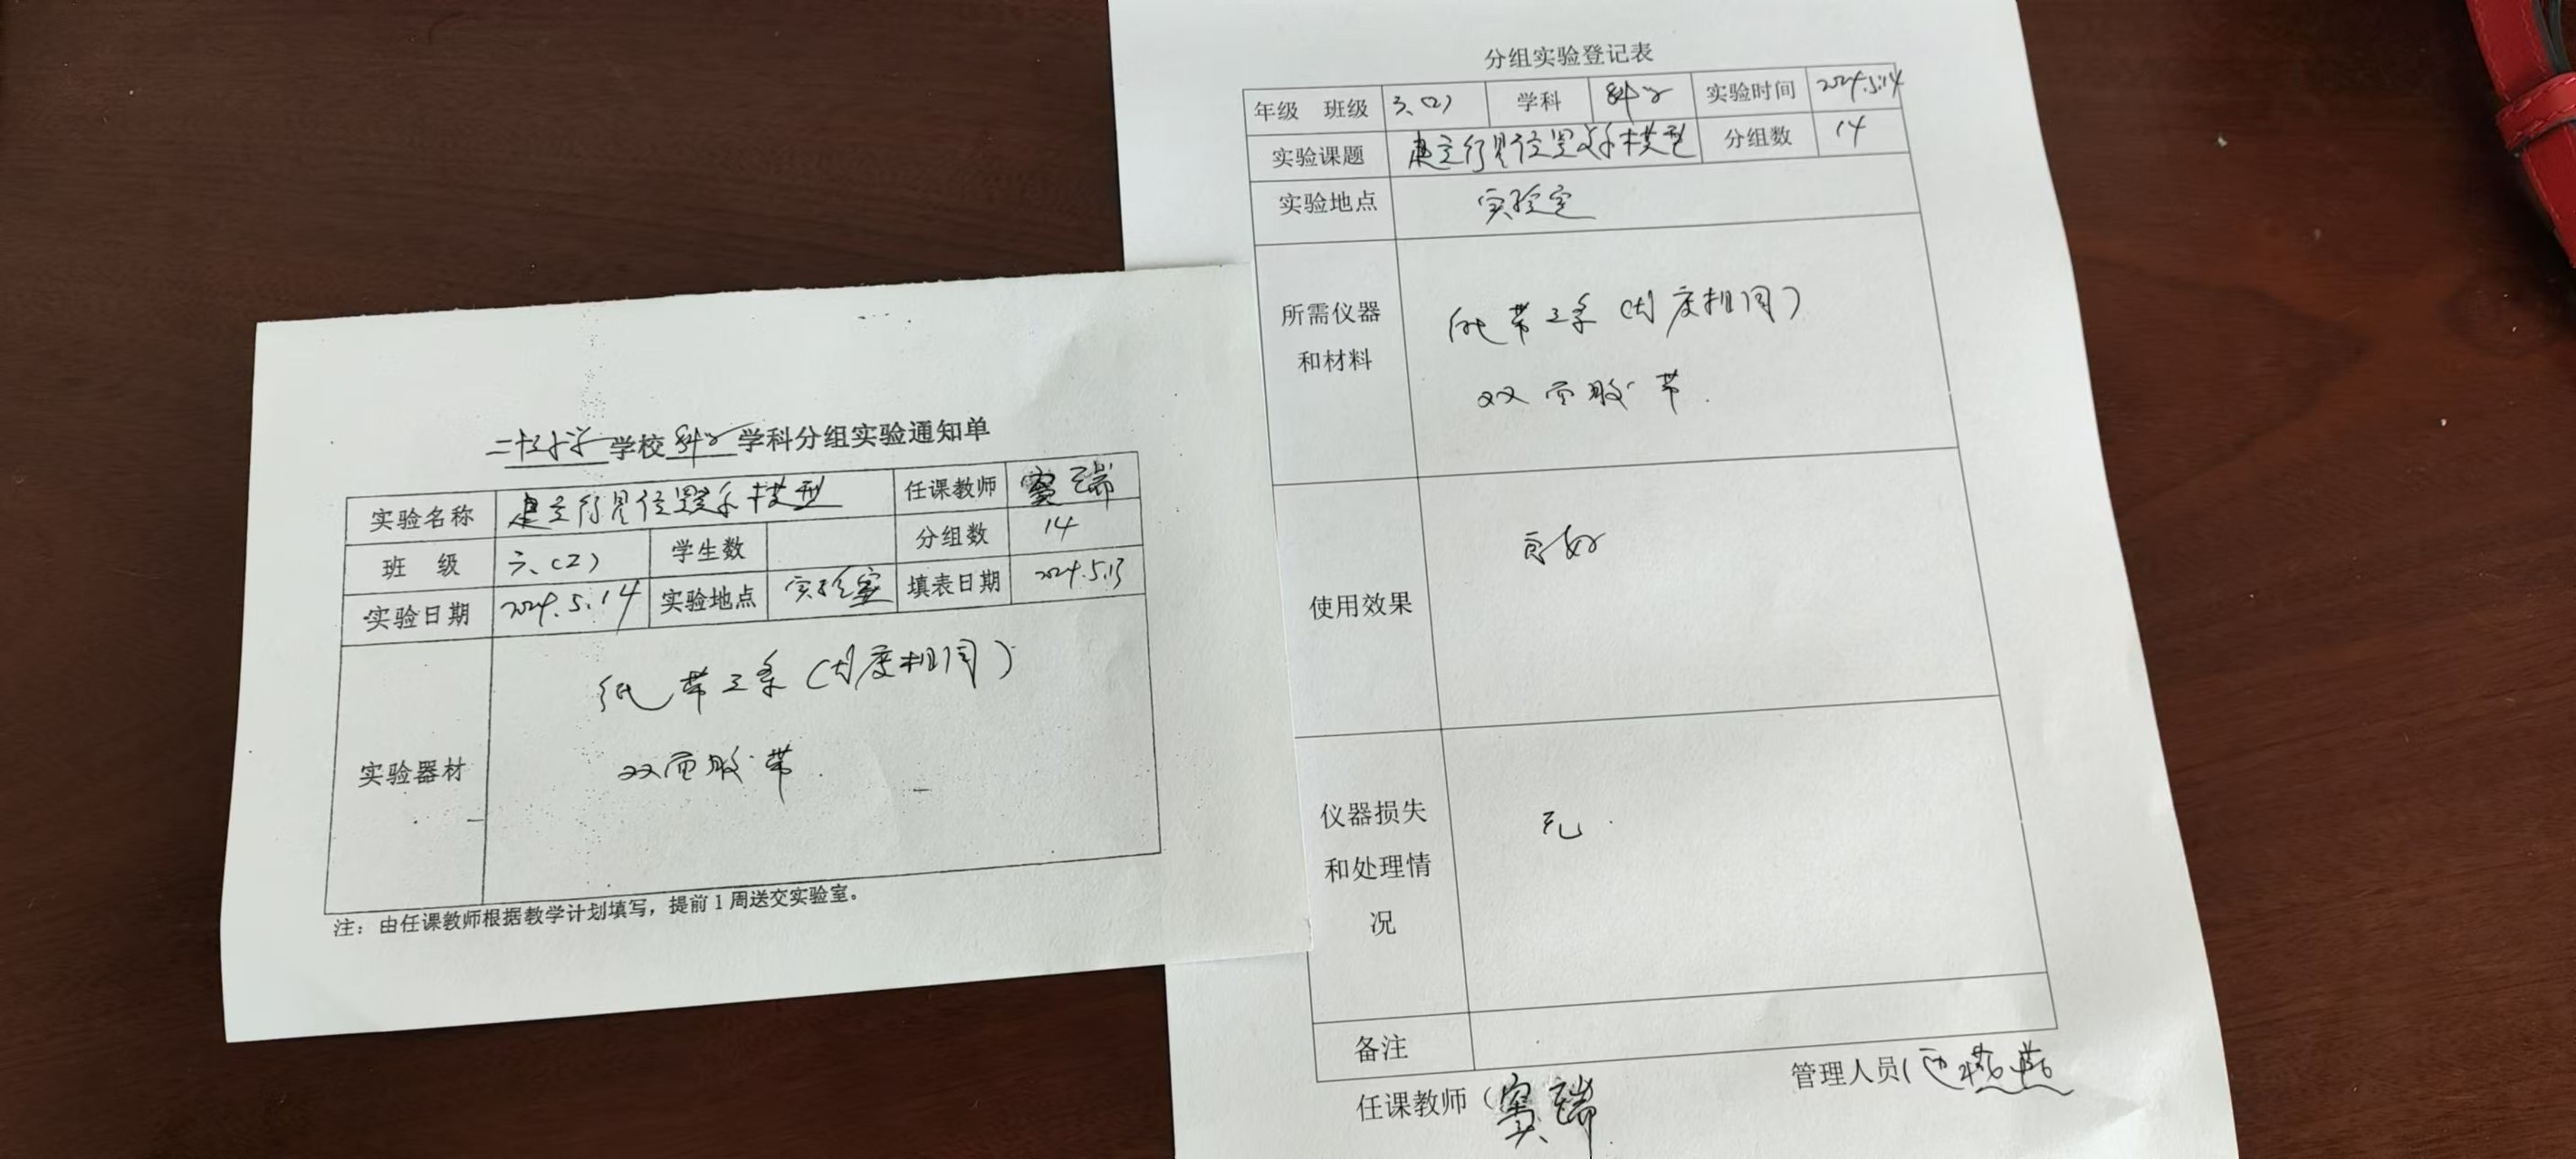 学校科学学科分组实验通知单
实验名称 建立行星位置关系模型 任课教师 窦瑞
班 级 六、(2) 学生数 分组数 14
实验日期 2024.5.14 实验地点 实验室 填表日期 2024.5.13
实验器材
纸带三条(长度相同)
双面胶带
注：由任课教师根据教学计划填写，提前1周送交实验室。
分组实验登记表
年级 班级 六、(2) 学科 科学 实验时间 2024.5.14
实验课题 建立行星位置关系模型 分组数 14
实验地点 实验室
所需仪器
和材料
纸带三条(长度相同)
双面胶带.
使用效果 良好
仪器损失
和处理情
况
无.
备注
任课教师（窦瑞 管理人员(